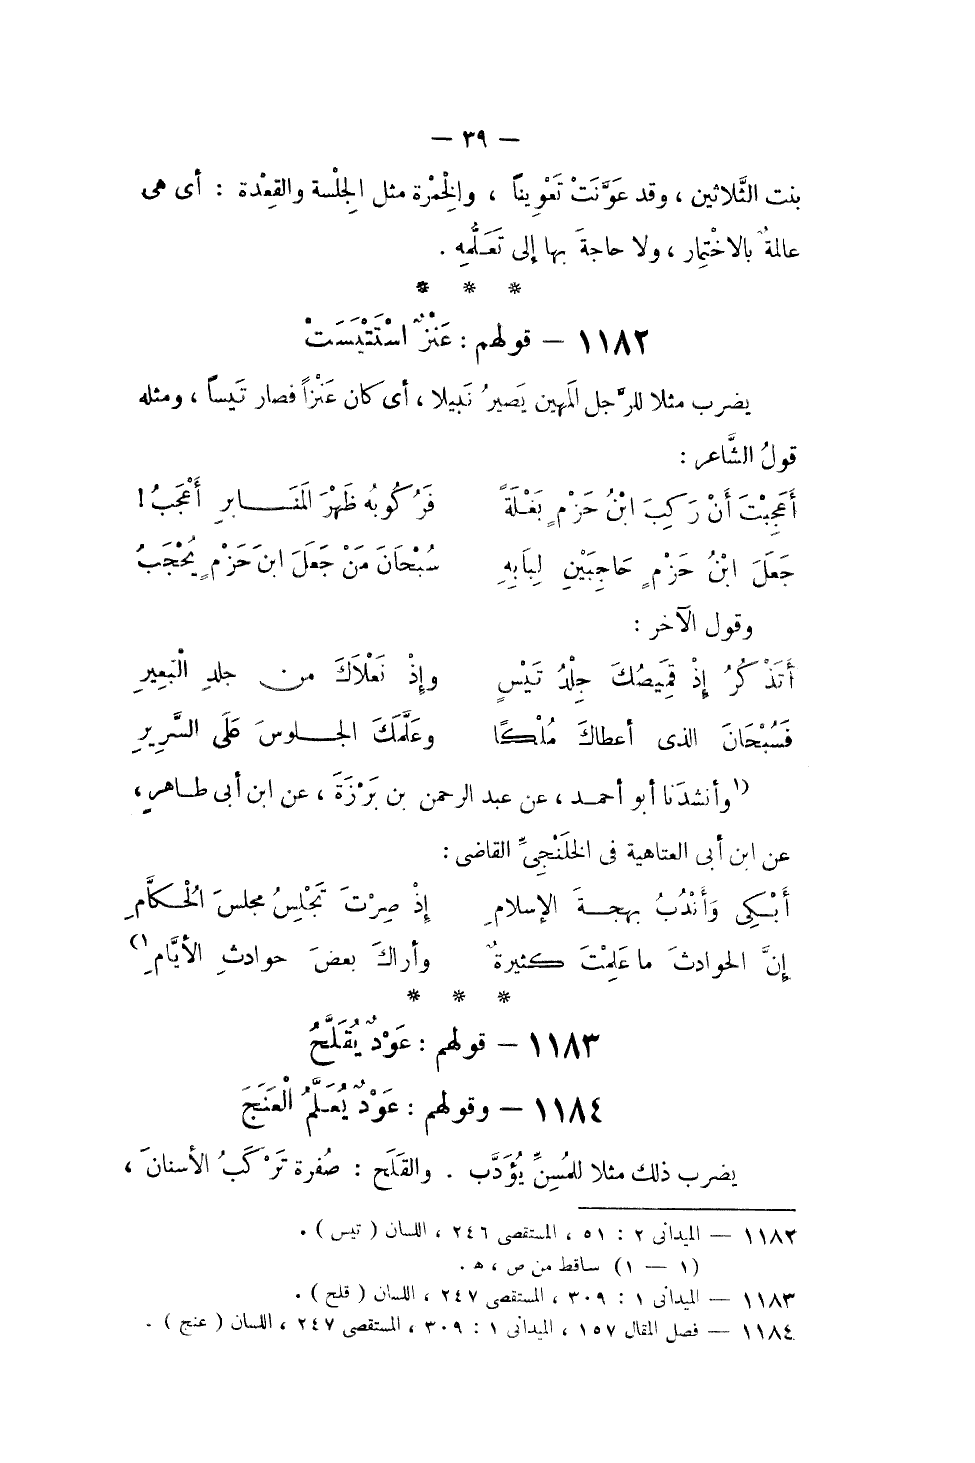 — ٣٩ —
بنت الثَّلاثين ، وقد عَوَّنَتْ تَعْوِيناً ، والخِمْرة مثل الجِلْسة والقِعْدة : أى هى
عالمةٌ بالاخْتِمار ، ولا حاجةَ بها إلى تَعَلُّمِه .
* * *
١١٨٢ — قولهم : عَنْزٌ اسْتَتْيَسَتْ
يضرب مثلا للرَّجل المَهين يَصيرُ نَبيلا ، أى كان عَنْزاً فصار تَيساً ، ومثله
قولُ الشَّاعر :
أَعَجِبْتَ أَنْ رَكِبَ ابْنُ حَزْمٍ بَغْلَةً فَرُكُوبُه ظَهْرَ المَنَابرِ أَعْجَبُ !
جَعَلَ ابْنُ حَزْمٍ حَاجِبَيْنِ لِبَابِهِ سُبْحَانَ مَنْ جَعَلَ ابنَ حَزْمٍ يُحْجَبُ
وقول الآخر :
أَتَذْكُرُ إِذْ قَمِيصُكَ جِلْدُ تَيْسٍ وإِذْ نَعْلاَكَ من جلدِ الْبَعِيرِ
فَسُبْحَانَ الذى أعطاكَ مُلْكًا وعَلَّمَكَ الجلوسَ عَلَى السَّرِيرِ
(١ وأنشدَنا أبو أحمد ، عن عبد الرحمن بن بَرْزَةَ ، عن ابن أبى طاهرٍ ،
عن ابن أبى العتاهية فى الخَلَنْجِىِّ القاضى :
أَبْكِى وَأَنْدُبُ بهجةَ الإسلامِ إِذْ صِرْتَ تَجْلِسُ مجلسَ الحُكَّامِ
إِنَّ الحوادثَ ما عَلِمْتَ كثيرةٌ وأراكَ بعضَ حوادثِ الأيَّامِ ١)
* * *
١١٨٣ — قولهم : عَوْدٌ يُقَلَّحُ
١١٨٤ — وقولهم : عَوْدٌ يُعَلَّمُ الْعَنَجَ
يضرب ذلك مثلا للمُسِنِّ يُؤَدَّب . والقَلَح : صُفرة تَرْكَبُ الأسنانَ ،
١١٨٢ — الميدانى ٢ : ٥١ ، المستقصى ٢٤٦ ، اللسان ( تيس ) .
(١ — ١) ساقط من ص ، هـ .
١١٨٣ — الميدانى ١ : ٣٠٩ ، المستقصى ٢٤٧ ، اللسان ( قلح ) .
١١٨٤ — فصل المقال ١٥٧ ، الميدانى ١ : ٣٠٩ ، المستقصى ٢٤٧ ، اللسان ( عنج ) .